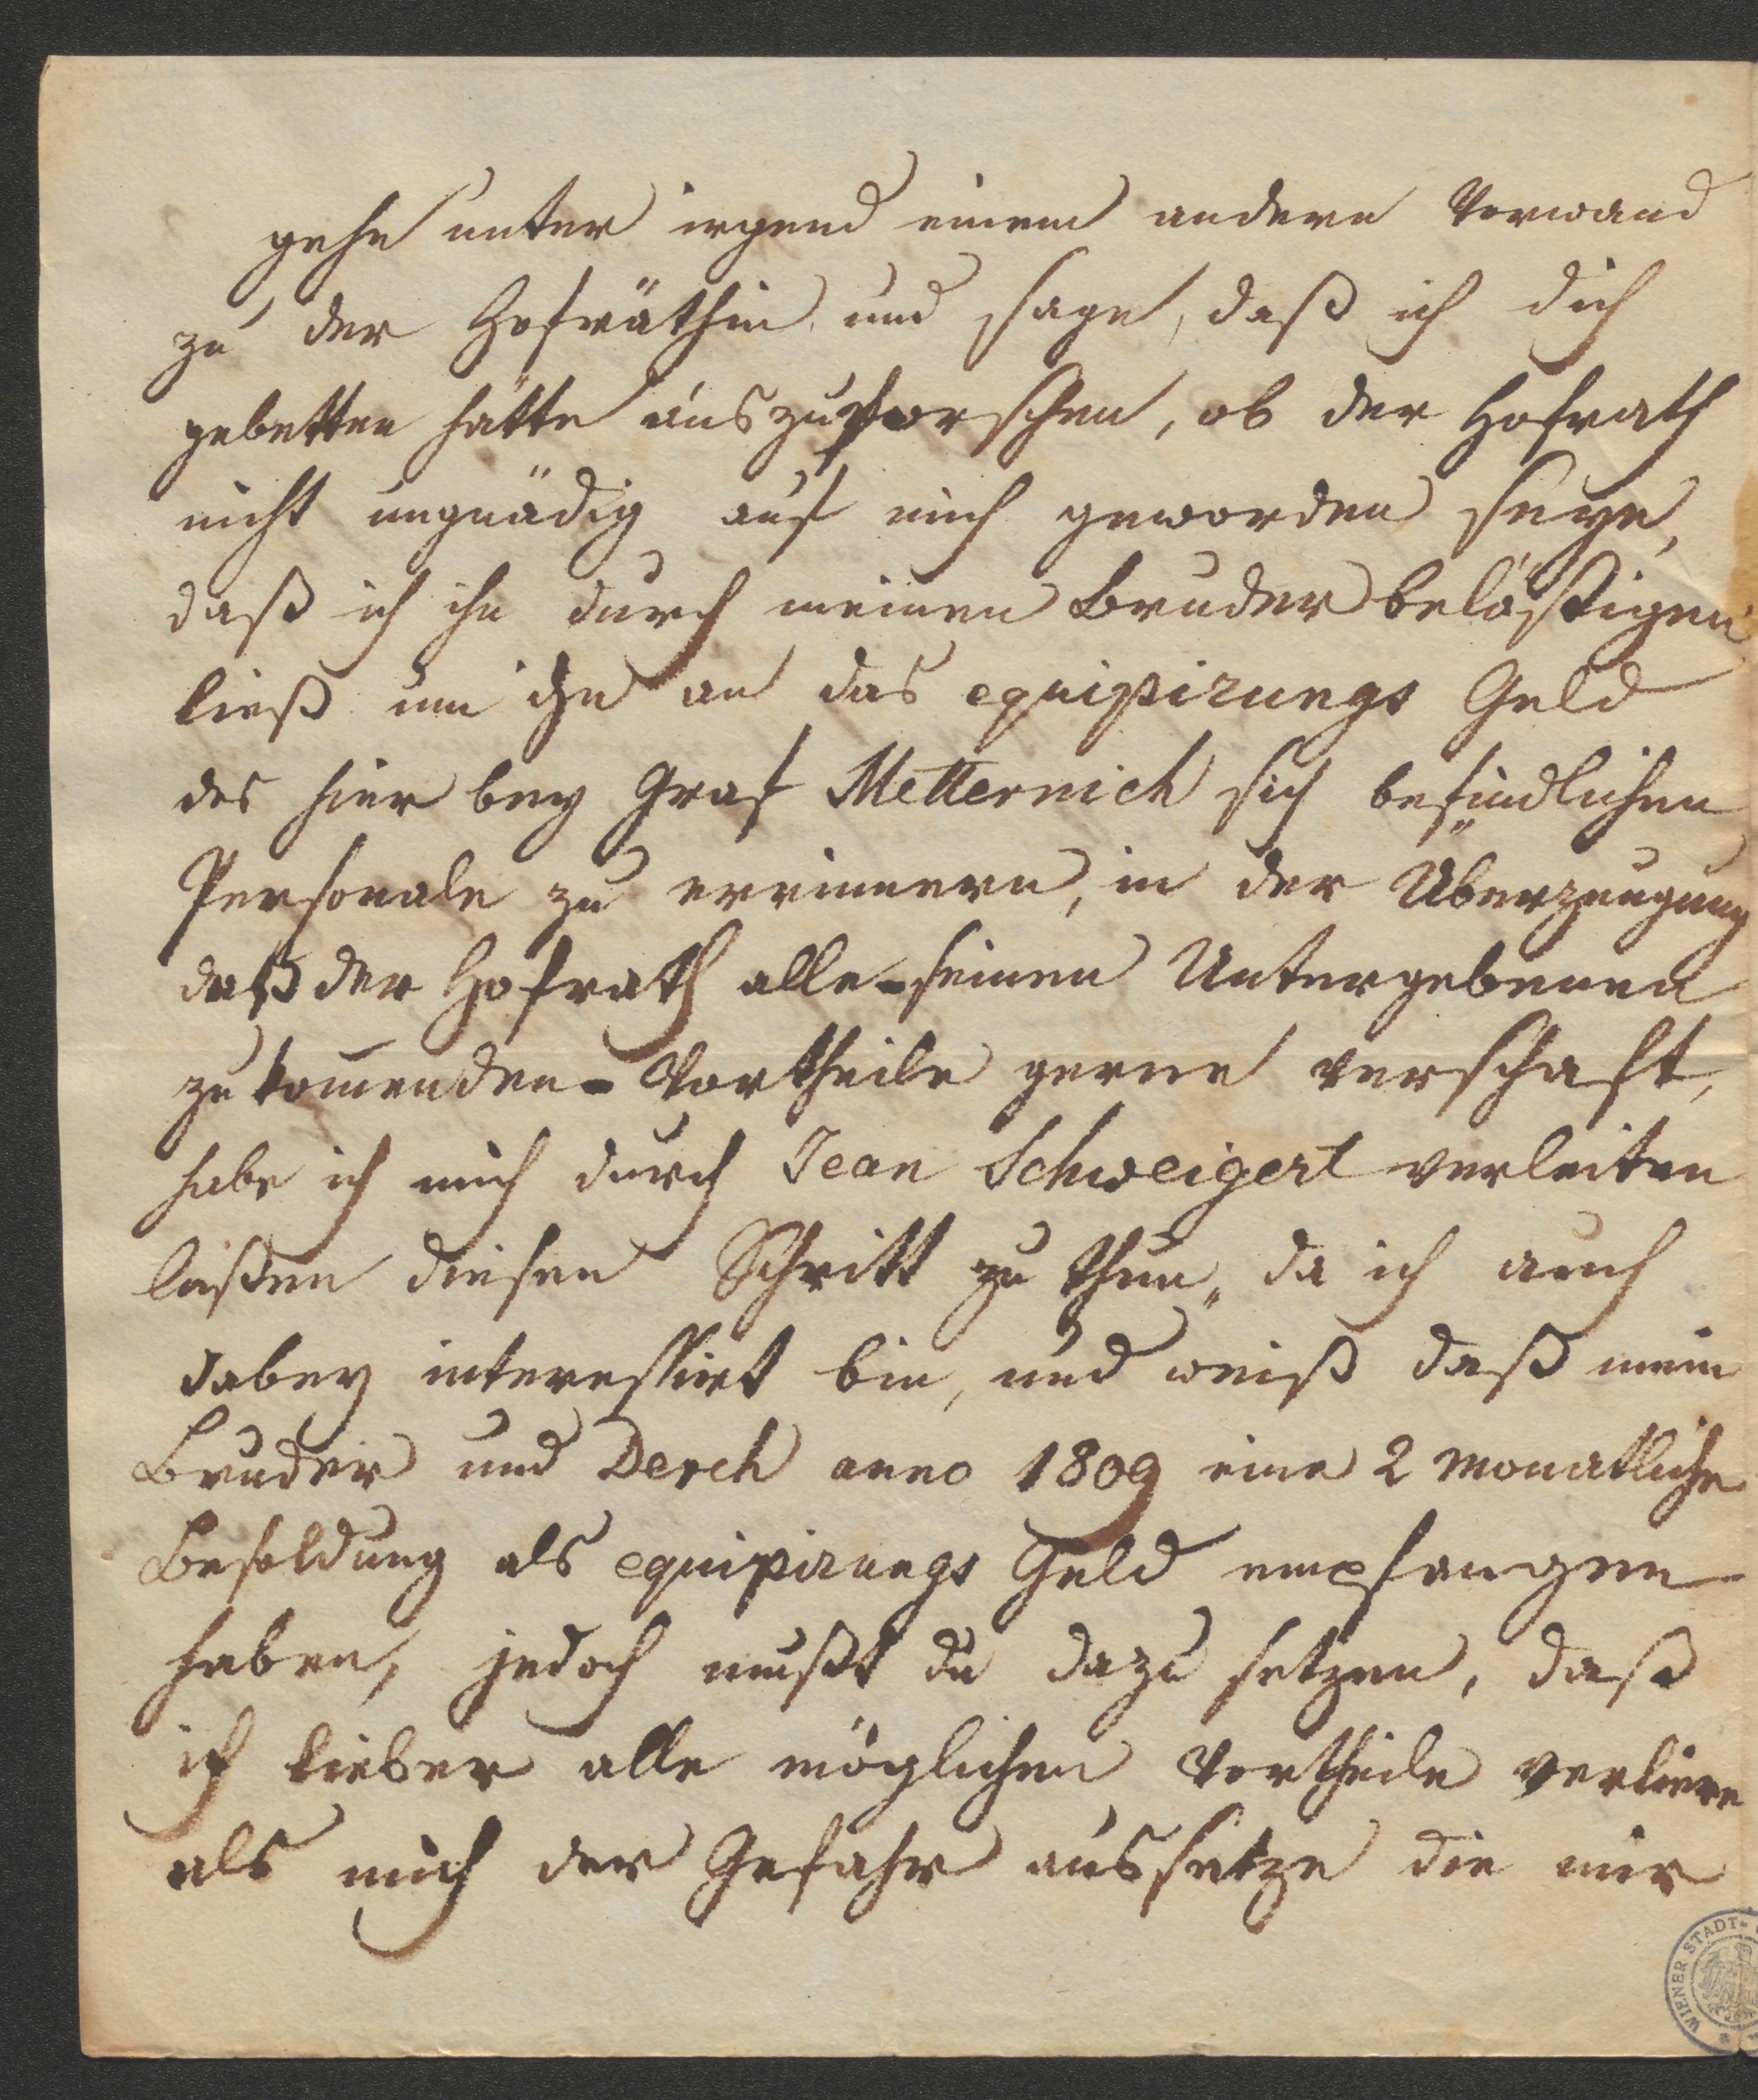 gehe unter irgend einem andern Vorwand
zu der Hofräthin und sage, daß ich dich
gebetten hätte auszuforschen, ob der Hofrath
nicht ungnädig auf mich geworden seye,
daß ich ihn durch meinen Bruder belästigen
ließ um ihn an das equipirungs Geld
des hier bey Graf Metternich sich befindlichen
Personale zu erinnern, in der Überzeugung
daß der Hofrath alle-seinen Untergebenen
zukom̅enden-Vortheile gerne verschaft,
habe ich mich durch Jean Schweigert verleiten
laßen diesen Schritt zu thun, da ich auch
dabey interessirt bin, und weiß daß mein
Bruder und Derch anno 1809 eine 2 monatliche
Besoldung als equipirungs Geld empfangen
haben, jedoch mußt du dazu setzen, daß
ich lieber alle möglichen Vortheile verliere
als mich der Gefahr aussetze die mir
WIENER STADT-